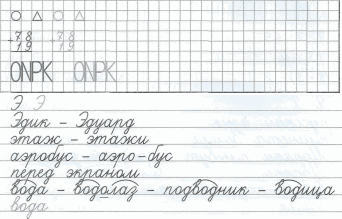 +78 +78
19 19
ОNРК ОNРК
Э Э
Эдик – Эдуард
этаж – этажи
аэробус – аэро-бус
перед экраном
вода – водолаз – подводник – водица
вода